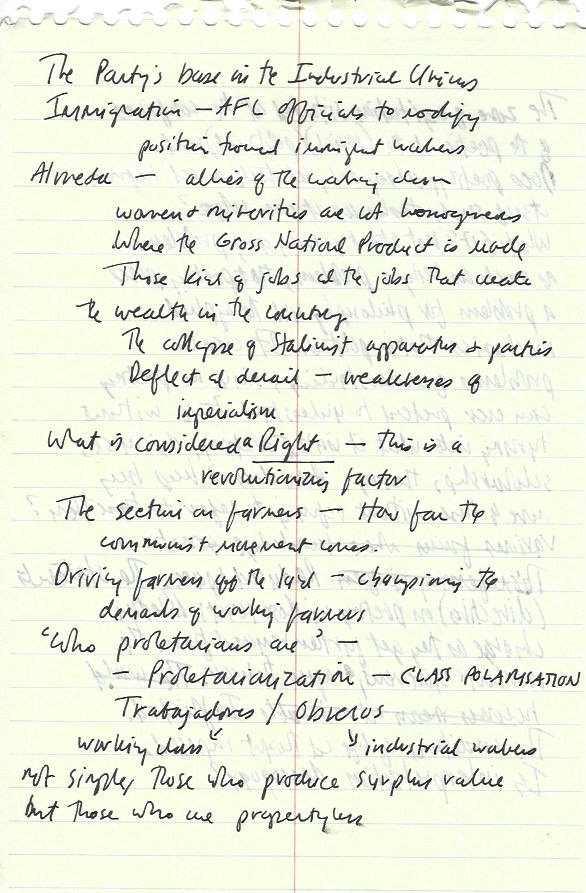 The Party's base in the Industrial Unions
Immigration — AFL officials to modify
position toward immigrant workers
Almeda — allies of the working class
women & minorities are not homogeneous
Where the Gross National Product is made
Those kins of jobs at the jobs that create
the wealth in the country
The collapse of Stalinist apparatus & parties
Deflect al derail — weaknesses of
imperialism
What is considered a Right — This is a
revolutionizing factor
The section on farmers — How far the
communist movement comes.
Driving farmers off the land — championing the
demands of working farmers
"Who proletarians are" —
— Proletarianization — CLASS POLARISATION
Trabajadores / Obreros
working class industrial workers
not simply those who produce surplus value
but those who are propertyless